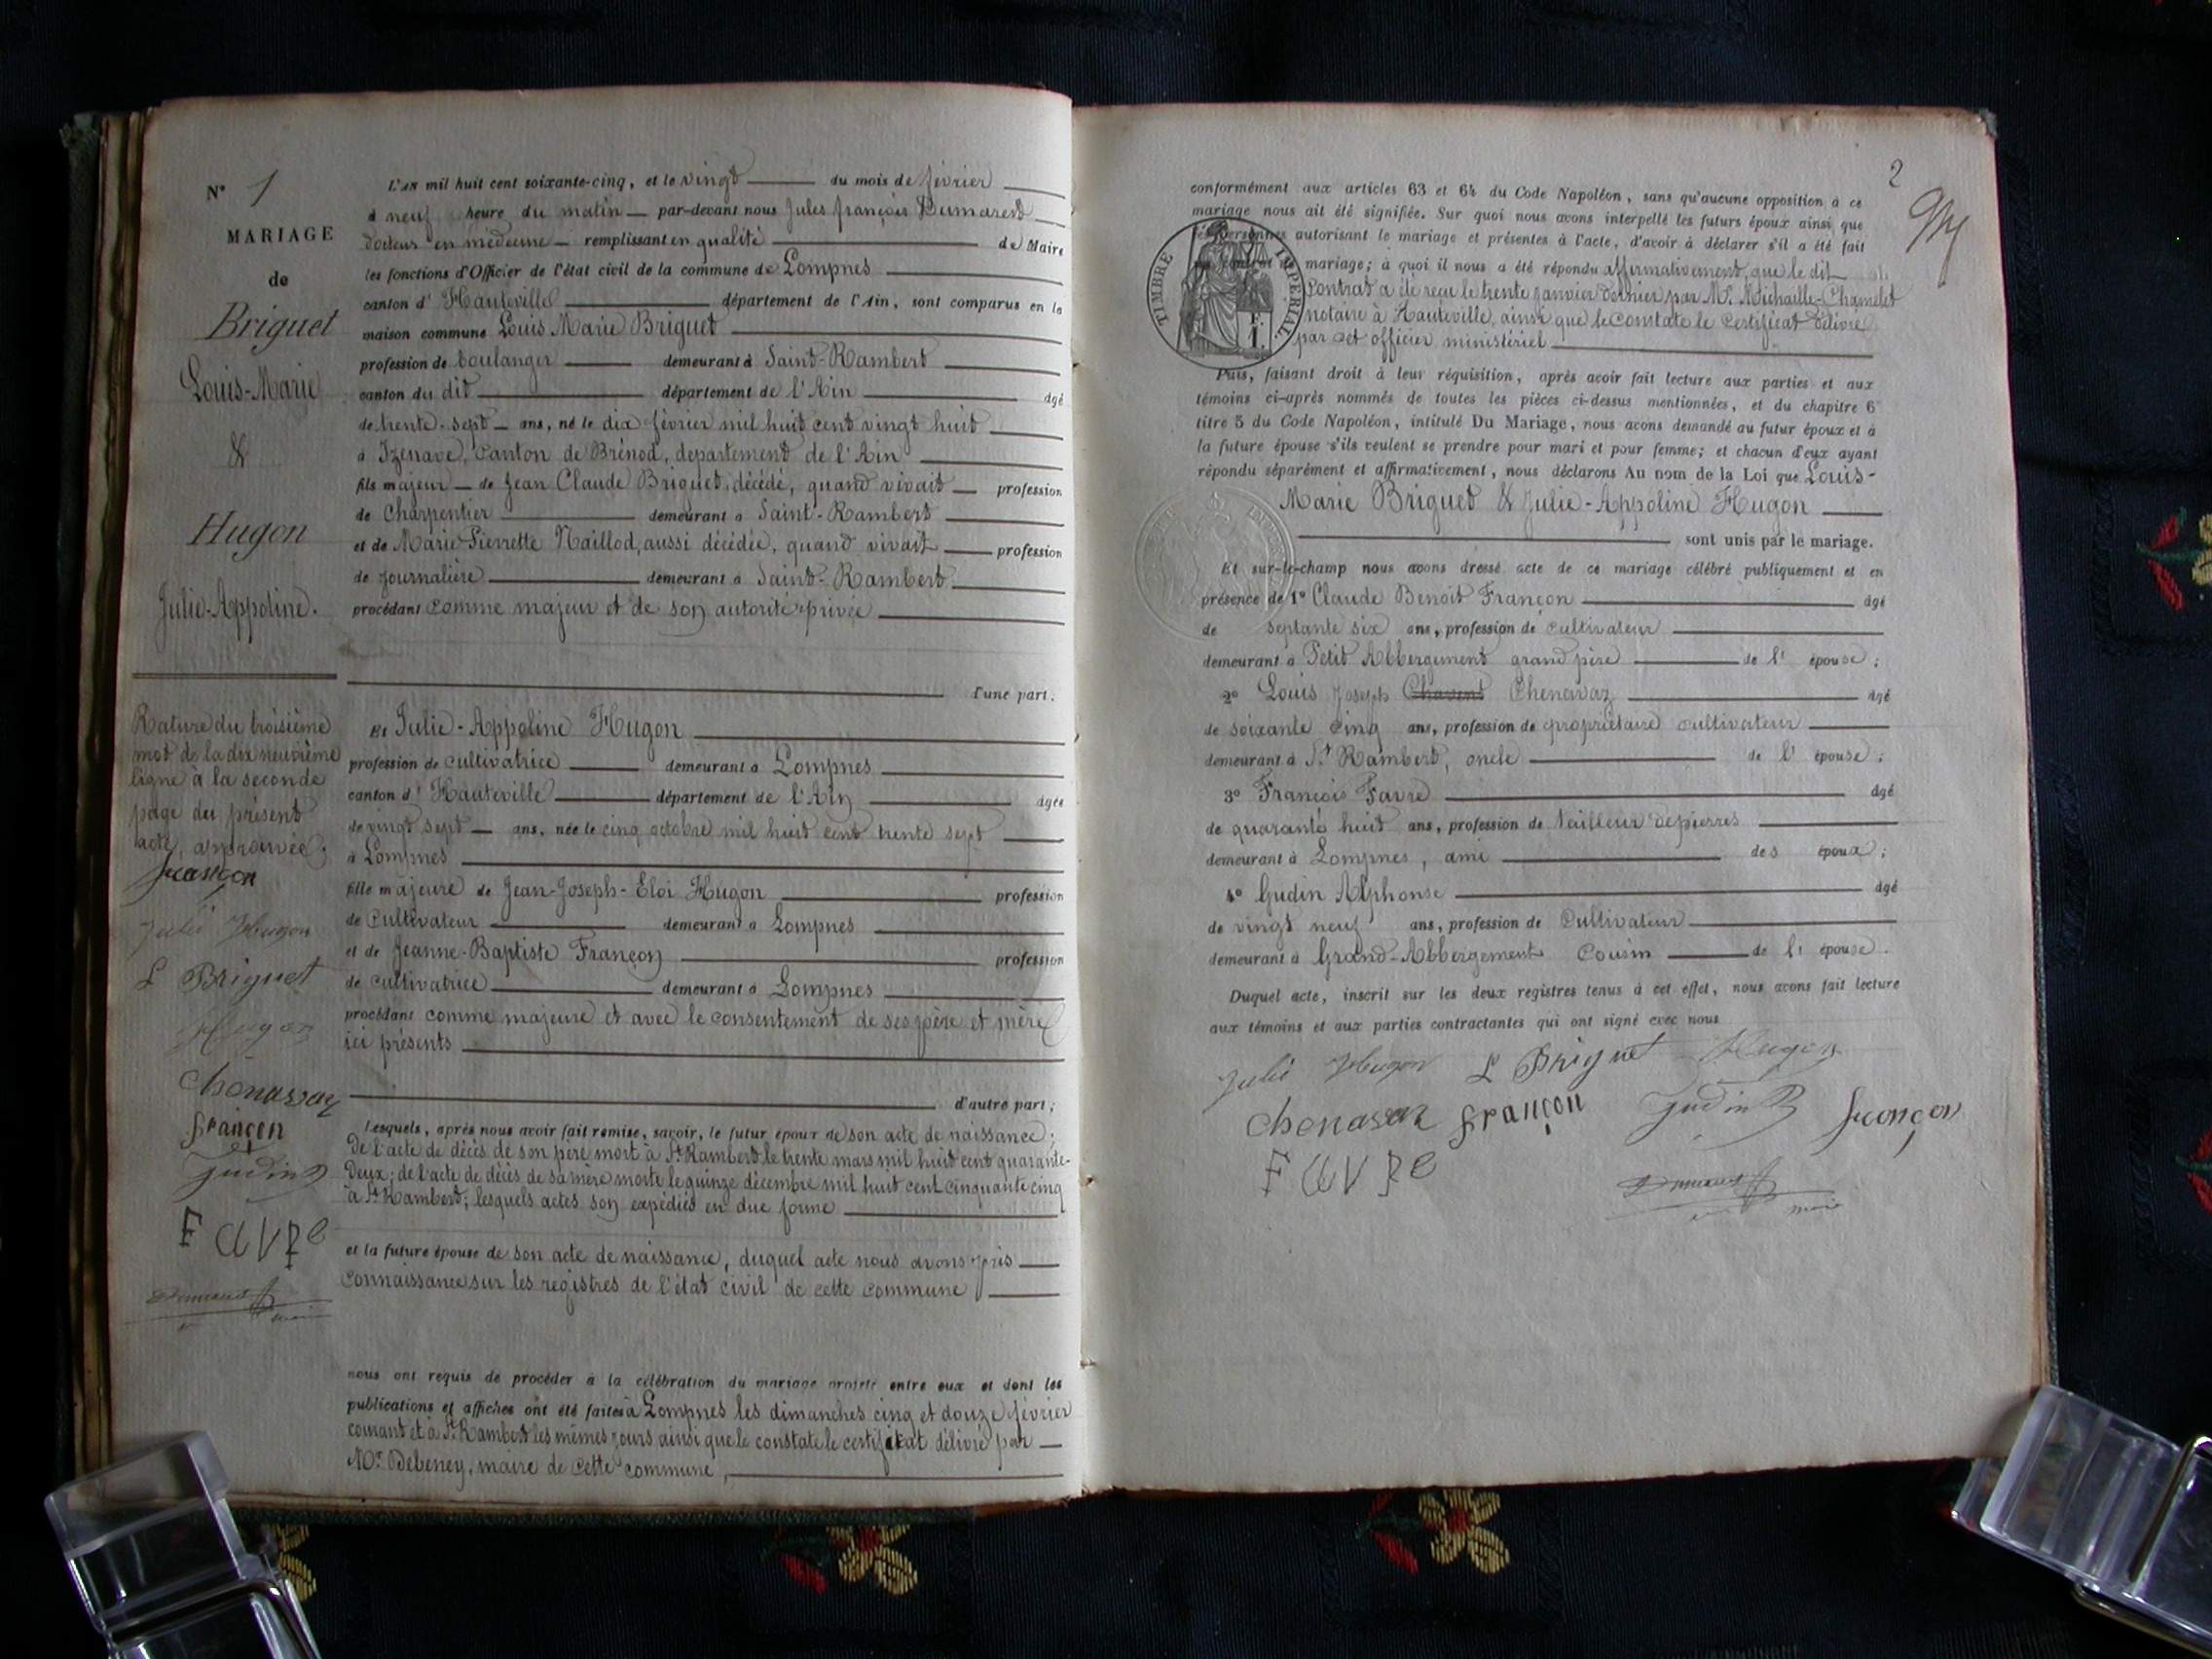 N° 1
MARIAGE
de
Briguet
Louis-Marie
&
Hugon
Julie-Appoline.
Rature du troisième
mot de la dix neuvième
ligne à la seconde
page du présent
acte, approuvée.
françon
Julie Hugon
L Briguet
Hugon
Chenavaz
françon
Judin
FAVRE
L'an mil huit cent soixante-cinq, et le vingt du mois de février
à neuf heure du matin par-devant nous Jules françois Dumarest
docteur en médecine remplissant en qualité de Maire
les fonctions d'Officier de l'état civil de la commune de Lompnes
canton d'Hauteville département de l'Ain, sont comparus en la
maison commune Louis Marie Briguet
profession de boulanger demeurant à Saint-Rambert
canton du dit département de l'Ain âgé
de trente-sept ans, né le dix février mil huit cent vingt huit
à Izenave, Canton de Brénod, département de l'Ain
fils majeur de Jean Claude Briguet, décédé, quand vivait profession
de Charpentier demeurant à Saint-Rambert
et de Marie Pierrette Naillod, aussi décédée, quand vivait profession
de Journalière demeurant à Saint-Rambert
procédant comme majeur et de son autorité privée
d'une part.
Et Julie-Appoline Hugon
profession de cultivatrice demeurant à Lompnes
canton d'Hauteville département de l'Ain âgée
de vingt sept ans, née le cinq octobre mil huit cent trente sept
à Lompnes
fille majeure de Jean-Joseph-Eloi Hugon profession
de Cultivateur demeurant à Lompnes
et de Jeanne-Baptiste Françon profession
de cultivatrice demeurant à Lompnes
procédant comme majeure et avec le consentement de ses père et mère
ici présents
d'autre part;
Lesquels, après nous avoir fait remise, savoir, le futur époux de son acte de naissance;
De l'acte de décès de son père mort à St Rambert le trente mars mil huit cent quarante-
Deux; de l'acte de décès de sa mère morte le quinze décembre mil huit cent cinquante cinq
à St Rambert; lesquels actes son expédiés en due forme
et la future épouse de son acte de naissance, duquel acte nous avons pris
connaissance sur les registres de l'état civil de cette commune
nous ont requis de procéder à la célébration du mariage projeté entre eux et dont les
publications et affiches ont été faites à Lompnes les dimanches cinq et douze février
courant et à St Rambert les mêmes jours ainsi que le constate le certificat délivré par
Mr Debeney, maire de cette commune,
2
conformément aux articles 63 et 64 du Code Napoléon, sans qu'aucune opposition à ce
mariage nous ait été signifiée. Sur quoi nous avons interpellé les futurs époux ainsi que
les personnes autorisant le mariage et présentes à l'acte, d'avoir à déclarer s'il a été fait
mariage; à quoi il nous a été répondu affirmativement, que le dit
Contrat a été reçu le trente janvier dernier par Me Michaille-Chamelet
notaire à Hauteville, ainsi que le Constate le Certificat délivré
par cet officier ministériel
TIMBRE IMPÉRIAL
F. 1.
Puis, faisant droit à leur réquisition, après avoir fait lecture aux parties et aux
témoins ci-après nommés de toutes les pièces ci-dessus mentionnées, et du chapitre 6
titre 5 du Code Napoléon, intitulé Du Mariage, nous avons demandé au futur époux et à
la future épouse s'ils veulent se prendre pour mari et pour femme; et chacun d'eux ayant
répondu séparément et affirmativement, nous déclarons Au nom de la Loi que Louis-
Marie Briguet & Julie-Appoline Hugon
sont unis par le mariage.
Et sur-le-champ nous avons dressé acte de ce mariage célébré publiquement et en
présence de 1° Claude Benoit Françon âgé
de septante six ans, profession de cultivateur
demeurant à Petit Abbergement grand père de l' épouse;
2° Louis Joseph Chavent Chenavaz âgé
de soixante cinq ans, profession de propriétaire cultivateur
demeurant à St Rambert, oncle de l' épouse;
3° François Favre âgé
de quarante huit ans, profession de Tailleur de pierres
demeurant à Lompnes, ami des époux;
4° Gudin Alphonse âgé
de vingt neuf ans, profession de Cultivateur
demeurant à Grand-Abbergement Cousin de l' épouse.
Duquel acte, inscrit sur les deux registres tenus à cet effet, nous avons fait lecture
aux témoins et aux parties contractantes qui ont signé avec nous
Julie Hugon L Briguet Hugon
Chenavaz françon Judin françon
FAVRE
maire